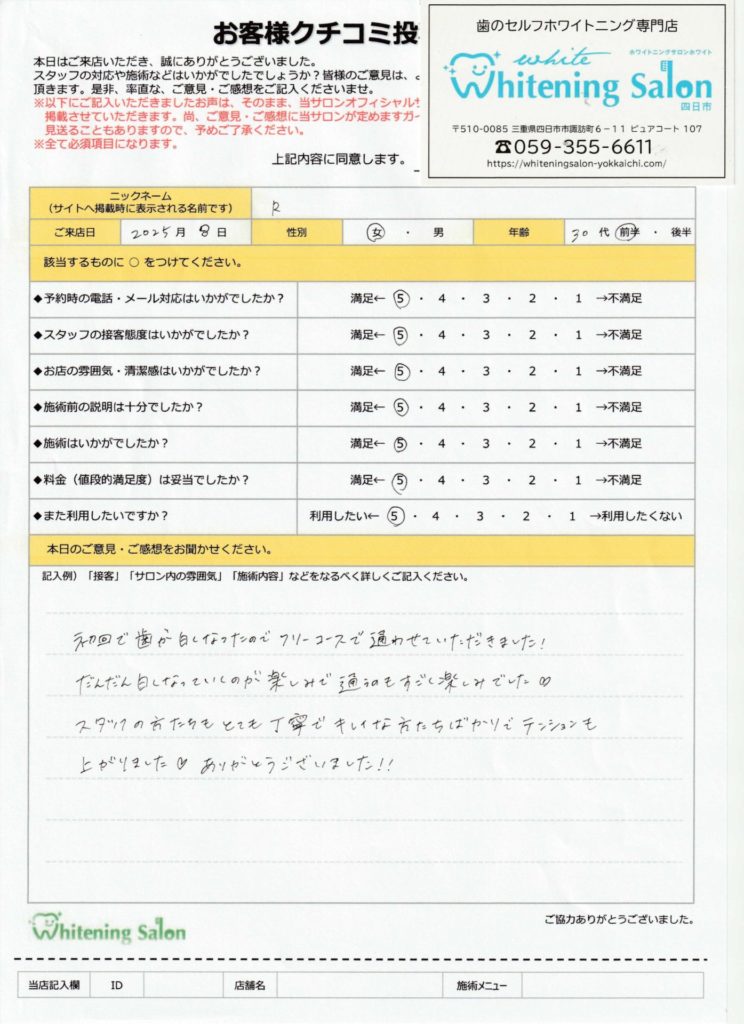 お客様クチコミ投
本日はご来店いただき、誠にありがとうございました。
スタッフの対応や施術などはいかがでしたでしょうか？皆様のご意見は、よ
頂きます。是非、率直な、ご意見・ご感想をご記入くださいませ。
※以下にご記入いただきましたお声は、そのまま、当サロンオフィシャルサ
掲載させていただきます。尚、ご意見・ご感想に当サロンが定めますガイ
見送ることもありますので、予めご了承ください。
※全て必須項目になります。
上記内容に同意します。
歯のセルフホワイトニング専門店
white
ホワイトニングサロンホワイト
Whitening Salon
四日市
〒510-0085 三重県四日市市諏訪町6-11 ピュアコート 107
☎059-355-6611
https://whiteningsalon-yokkaichi.com/
ニックネーム
（サイトへ掲載時に表示される名前です） R
ご来店日 2025月 8日 性別 女 ・ 男 年齢 30 代 前半 ・ 後半
該当するものに ○ をつけてください。
◆予約時の電話・メール対応はいかがでしたか？ 満足← 5 ・ 4 ・ 3 ・ 2 ・ 1 →不満足
◆スタッフの接客態度はいかがでしたか？ 満足← 5 ・ 4 ・ 3 ・ 2 ・ 1 →不満足
◆お店の雰囲気・清潔感はいかがでしたか？ 満足← 5 ・ 4 ・ 3 ・ 2 ・ 1 →不満足
◆施術前の説明は十分でしたか？ 満足← 5 ・ 4 ・ 3 ・ 2 ・ 1 →不満足
◆施術はいかがでしたか？ 満足← 5 ・ 4 ・ 3 ・ 2 ・ 1 →不満足
◆料金（値段的満足度）は妥当でしたか？ 満足← 5 ・ 4 ・ 3 ・ 2 ・ 1 →不満足
◆また利用したいですか？ 利用したい← 5 ・ 4 ・ 3 ・ 2 ・ 1 →利用したくない
本日のご意見・ご感想をお聞かせください。
記入例）「接客」「サロン内の雰囲気」「施術内容」などをなるべく詳しくご記入ください。
初回で歯が白くなったのでフリーコースで通わせていただきました!
だんだん白くなっていくのが楽しみで通うのもすごく楽しみでした♡
スタッフの方たちもとても丁寧でキレイな方たちばかりでテンションも
上がりました♡ ありがとうございました!!
Whitening Salon
ご協力ありがとうございました。
当店記入欄 ID 店舗名 施術メニュー